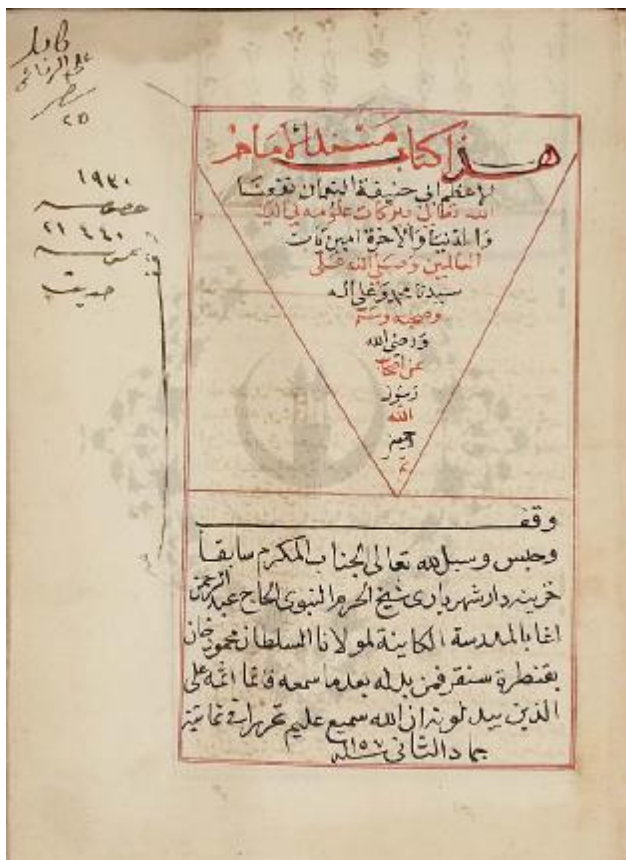 كامل
علي الرفاعي
١٩٣٠
خصوصية
٢١٤٤٠
عمومية
حديث
هذا كتاب مسند الإمام
لاعظم ابي حنيفة النعمان نفعنا
الله تعالى ببركات علومه في الدين
والدنيا والآخرة امين يا رب
العالمين وصلى الله على
سيدنا محمد وعلى اله
وصحبه وسلم
ورضى الله
عن اصحاب
رسول
الله
اجمعين
وقف
وحبس وسبل لله تعالى الجناب المكرم سابقا
خزيندار شهرياري شيخ الحرم النبوي الحاج عبد الرحمن
اغا بالمدرسة الكاينة لمولانا السلطان محمود خان
بقنطرة سنقر فمن بدله بعد ما سمعه فانما اثمه على
الذين يبدلونه ان الله سميع عليم تحريرا في
جماد الثاني سنة